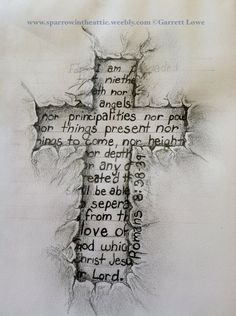 www.sparrowintheattic.weebly.com ©Garrett Lowe
I am
t niethe
ath nor
angels
nor principalities nor pow
nor things present nor
hings to come, nor height
or depth
or any c
eated th
ll be able
o sepera
from th
love of
od whic
hrist Jesu
r Lord.
Romans 8:38-39